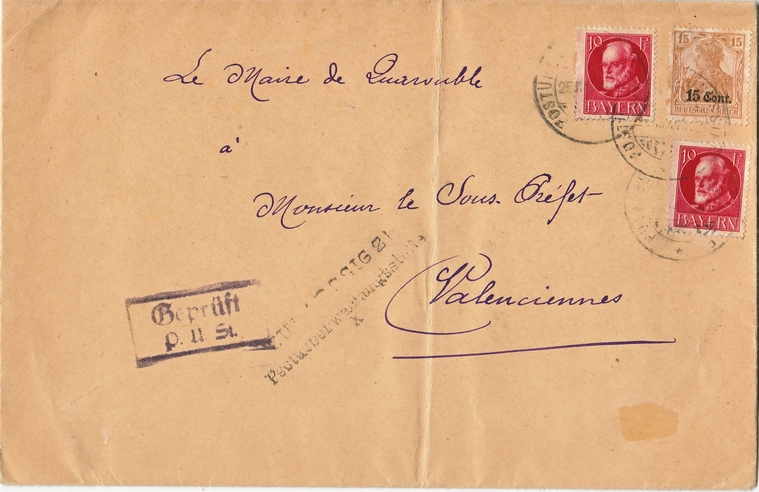 Le Maire de Quarouble
à
Monsieur le Sous-Préfet
Valenciennes
10 Pf
BAYERN
15 15
15 Cent.
DEUTSCHES REICH
10 Pf
BAYERN
Geprüft
P. Ü St.
Postüberwachungsstelle
X